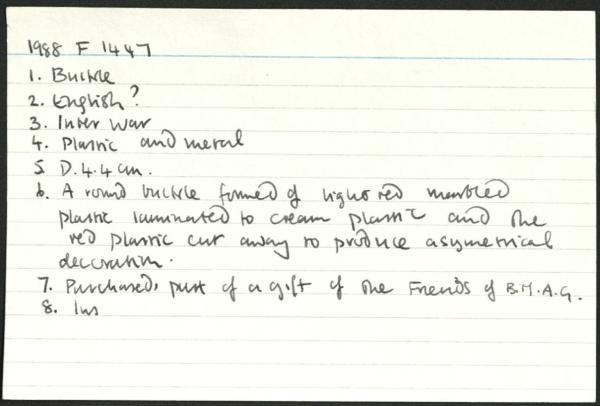 1988 F 1447
1. Buckle
2. English?
3. Inter War
4. Plastic and metal
5. D. 4.4 cm.
6. A round buckle formed of light red marbled
plastic laminated to cream plastic and the
red plastic cut away to produce asymetrical
decoration.
7. Purchased, part of a gift of the Friends of B.M.A.G.
8. Ins